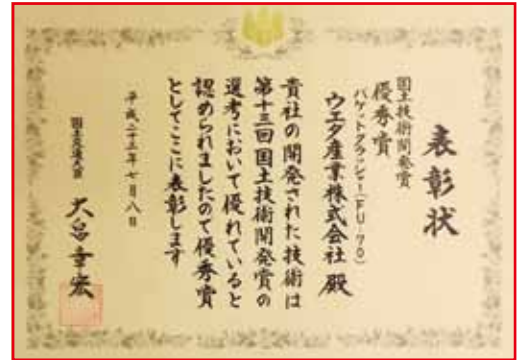 表彰状
国土技術開発賞
優秀賞
バケットクラッシャー(FU-70)
ウエダ産業株式会社 殿
貴社の開発された技術は
第十三回国土技術開発賞の
選考において優れていると
認められましたので優秀賞
としてここに表彰します
平成二十三年七月八日
国土交通大臣
大畠章宏